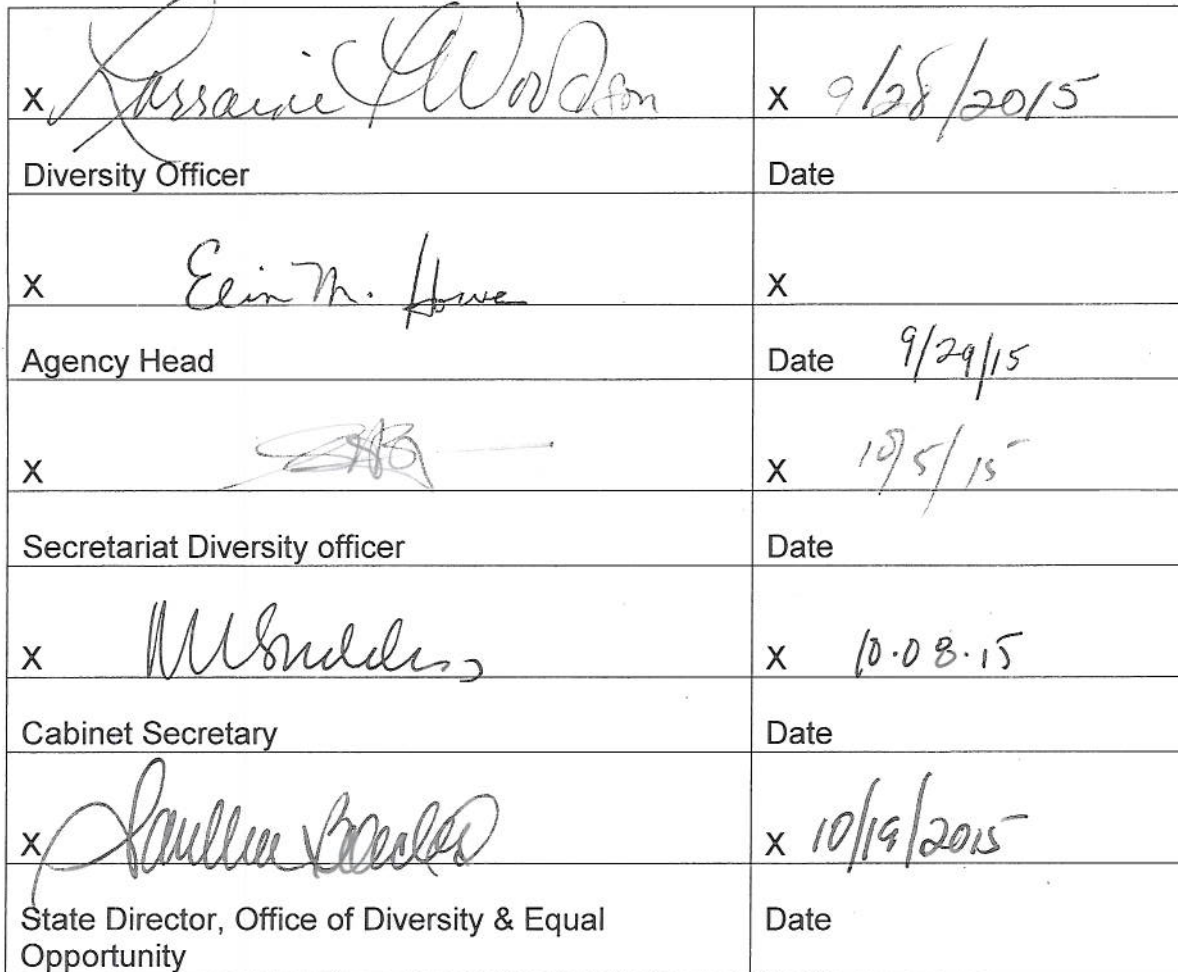 X Lorraine Woodson X 9/28/2015
Diversity Officer Date
X Elin M. Howe X
Agency Head Date 9/29/15
X X 10/5/15
Secretariat Diversity officer Date
X X 10.08.15
Cabinet Secretary Date
X X 10/19/2015
State Director, Office of Diversity & Equal Date
Opportunity